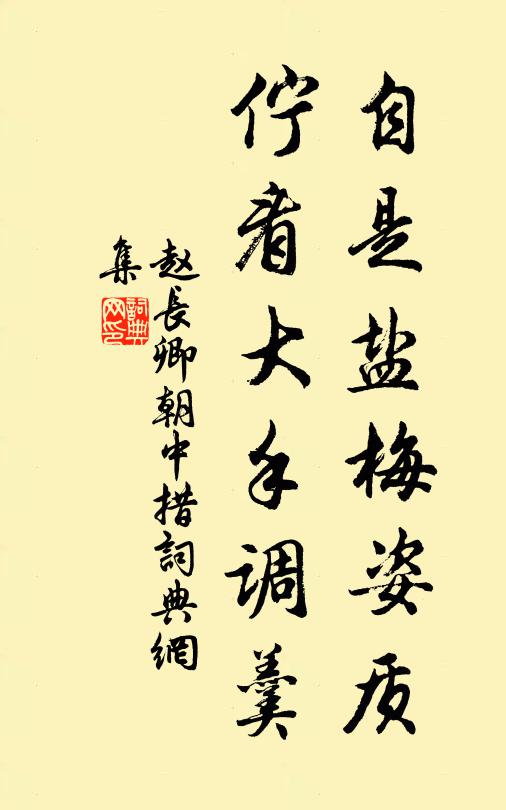 自是盐梅姿质
伫看大手调羹
赵長卿朝中措詞典網
集
詞典网印